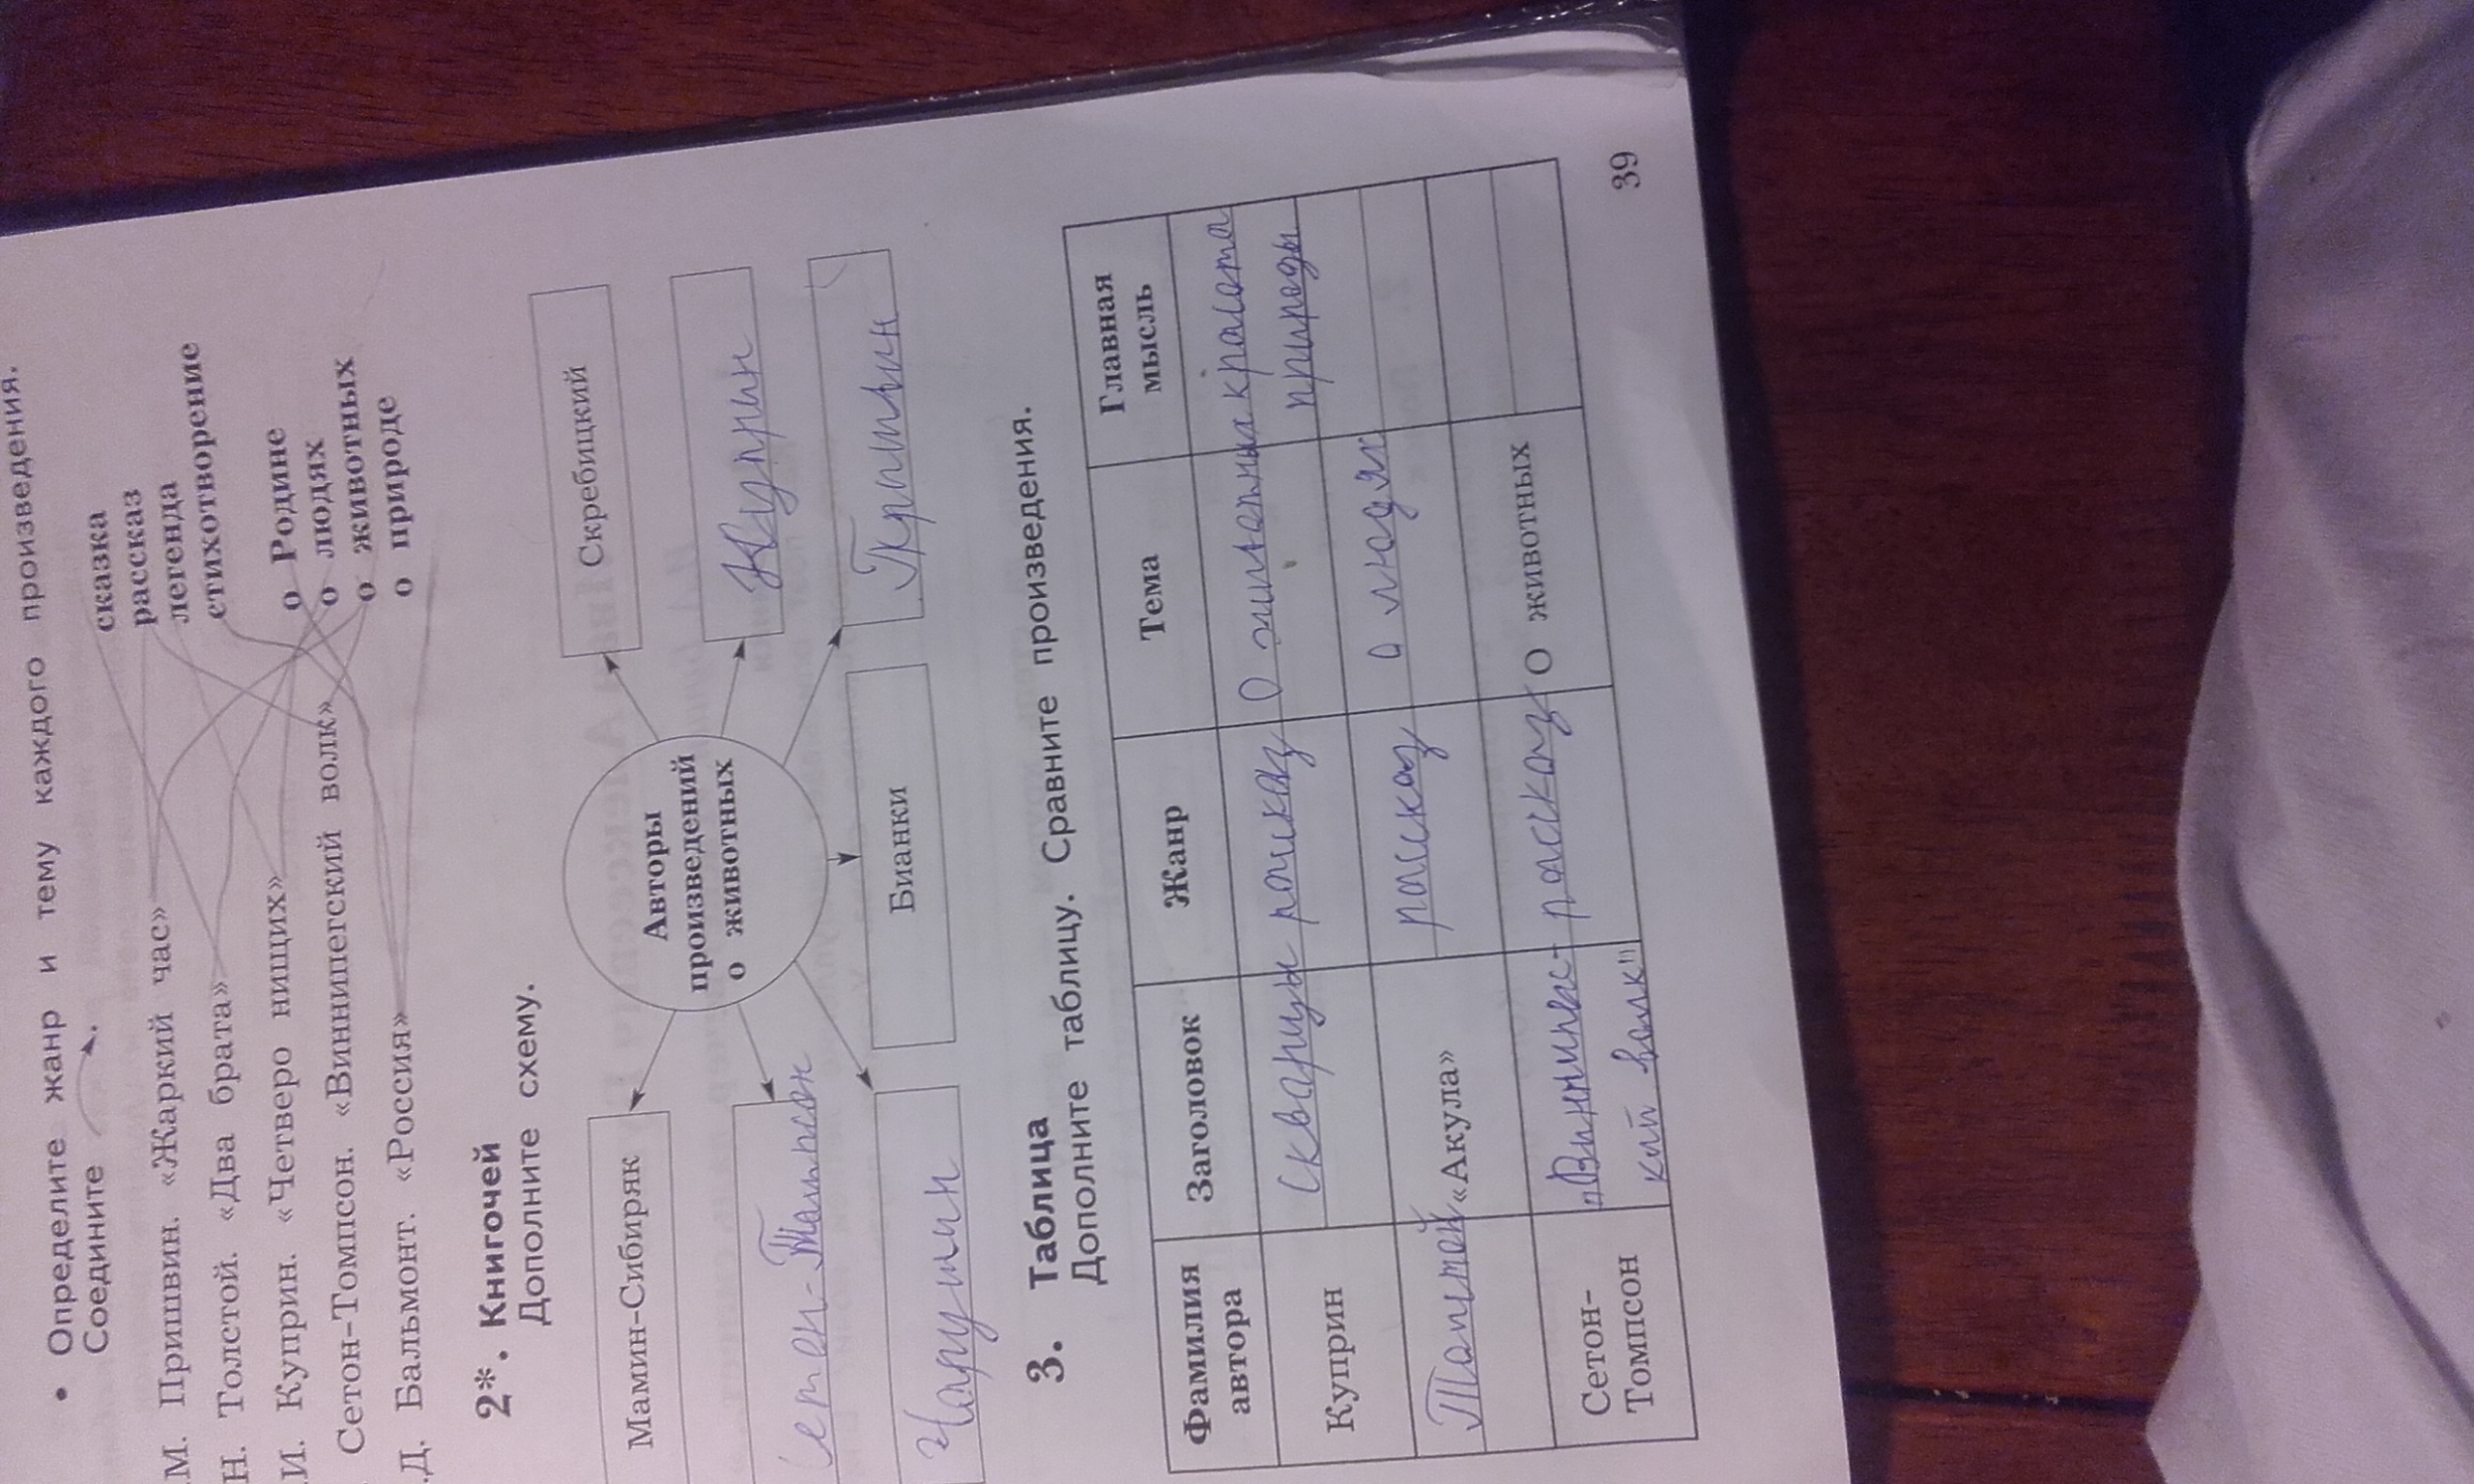 Определите жанр и тему каждого произведения.
Соедините
М. Пришвин. «Жаркий час»
Н. Толстой. «Два брата»
И. Куприн. «Четверо нищих»
Сетон-Томпсон. «Виннипегский волк»
Д. Бальмонт. «Россия»
сказка
рассказ
легенда
стихотворение
о Родине
о людях
о животных
о природе
2*. Книгочей
Дополните схему.
Авторы
произведений
о животных
Мамин-Сибиряк
Сетон-Томпсон
Чарушин
Бианки
Скребицкий
Куприн
Пришвин
3. Таблица
Дополните таблицу. Сравните произведения.
Фамилия
автора
Заголовок
Жанр
Тема
Главная
мысль
Куприн
скварцы
рассказ
О животных
красота
природы
Толстой
«Акула»
рассказ
о людях
Сетон-
Томпсон
"Виннипегс-
кий волк"
рассказ
О животных
39